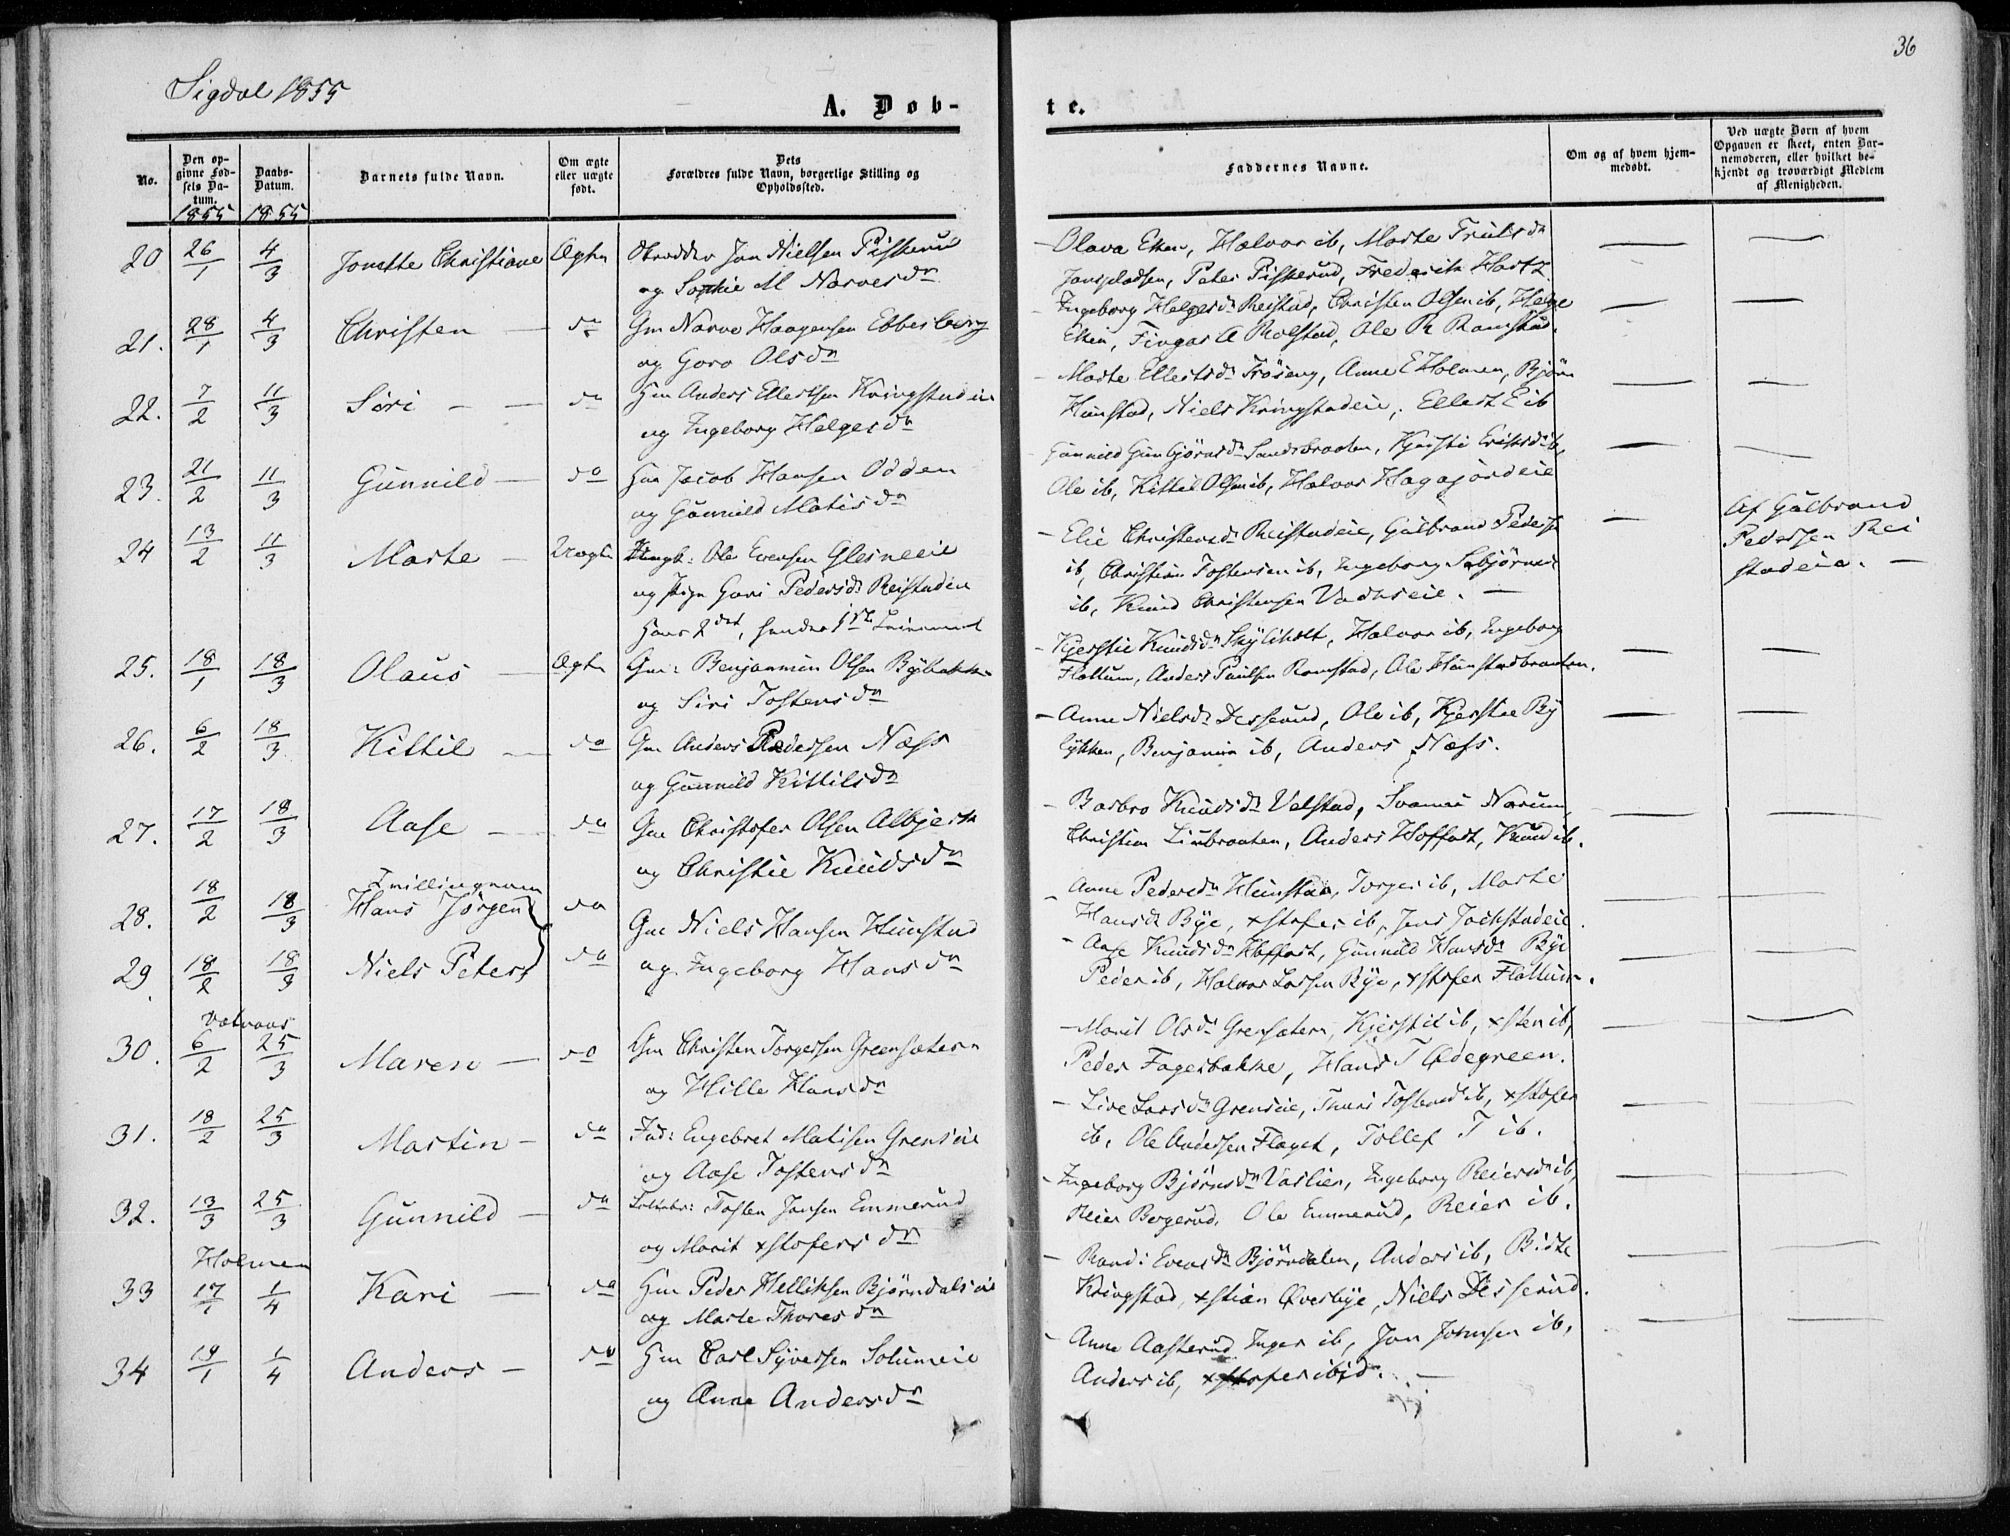 36
Sigdal 1855
A. Døb-
te.
No.
Den opgivne Fødsels Datum.
Daabs-Datum.
Barnets fulde Navn.
Om ægte eller uægte født.
Dets Forældres fulde Navn, borgerlige Stilling og Opholdssted.
Faddernes Navne.
Om og af hvem hjemmedøbt.
Ved uægte Børn af hvem Opgaven er skeet, enten Barnemoderen, eller hvilket bekjendt og troværdigt Medlem af Menigheden.
1855 1855
20 26/1 4/3 Jonette Christiane Ægte Jan Nielsen Pisterud
og Sophie M Narvesdr
Olava Eken, Halvor ib, Marte Trulsdr
Peter Pisterud, Frederik Hartz
21. 28/1 4/3 Christen — do Gm Narve Haagensen Ebbesberg
og Goro Olsdr
Ingeborg Helgesdr Reistad, Christen Olsen ib, Helge
Eken, Fingar A Rolstad, Ole R Ramstad.
22. 7/2 11/3 Siri — do Hm Anders Ellertsen Kringstadeie
og Ingeborg Helgesdr
Marte Ellertsdr Trøseng, Anne E Holmen, Bjørn
Hunstad, Niels Kringstadeie, Ellert E ib
23. 21/2 11/3 Gunnild — do Hm Jacob Hansen Odden
og Gunnild Matisdr
Gunnild Gunbjørnsdr Sandsbraaten, Kjersti Eriksdr ib,
Ole ib, Kittil Olsen ib, Halvor Hagagjordeie
24 13/2 11/3 Marte — Uægte Ungk: Ole Evensen Glesneeie
og Pige Gori Pedersdr Reistadeie
Hans 2det, hendes 1ste Leiermaal
Elie Christensdr Reistadeie, Gulbrand Peders.
ib, Christian Tostensen ib, Ingeborg
ib, Knud Christensen —
Af Gulbrand
Pedersen Rei
stadeie. —
25. 18/1 18/3 Olaus — Ægte Gm: Benjamin Olsen Bybakke
og Siri Tostensdr
Kjerstie Knudsdr Skyliholt, Halvor ib, Ingeborg
Flattum, Anders Paulsen Ramstad, Ole Hunstadbraaten.
26. 6/2 18/3 Kittil — do Gm Anders Pedersen Næss
og Gunnild Kittilsdr
Anne Nielsdr Desserud, Ole ib, Kjerstie By
lykken, Benjamin ib, Anders Næss.
27. 17/2 18/3 Aase — do Gm Christofer Olsen Albjerk
og Christie Knudsdr
Barbro Knudsdr Velstad, Narum,
Christian Linbraaten, Anders Hoffart, Knud ib.
Tvillingerne
28. 18/2 18/3 Hans Jørgen do Gm Niels Hansen Hunstad
Anne Pedersdr Hunstad, Torger ib, Marte
Hansdr Bye, xstofer ib, Jens Jockstadeie.
29 18/2 18/3 Niels Peter do og Ingeborg Hansdr
Aase Knudsdr Hoffart, Gunnild Hansdr Bye
Peder ib, Halvor Larsen Bye, xstofer Flattum.
30. 6/2 25/3 Maren — do Gm Christen Torgersen Grensætern
og Hille Hansdr
Marit Olsdr Grensætern, Kjerstie ib, xsten ib,
Peder Fagerbakke, Hans T Ødegreen.
31. 18/2 25/3 Martin — do Ind: Engebret Matisen Grenseie
og Aase Tostensdr
Live Larsdr Grenseie, Thuri Tostensdr ib, xstofer
ib, Ole Andersen Flaget, Tollef T ib.
32. 13/3 25/3 Gunnild — do Tosten Jansen Emmerud
og Marit xstofersdr
Ingeborg Bjørnsdr Vaslien, Ingeborg Reiersdr ib,
Reier Bergerud, Ole Emmerud, Reier ib.
Holmen
33 17/1 1/4 Kari — do Hm Peder Helliksen Bjørndalseie
og Marte Thoresdr
Rand: Evensdr Bjørndalen, Anders ib, Birte
Kringstad, xstian Øverbye, Niels Desserud.
34 19/1 1/4 Anders — do Hm Carl Syversen Solumeie
og Anne Andersdr
Anne Aasterud, Inger ib, Jan Jensen ib,
Anders ib, xstofer ibid. —